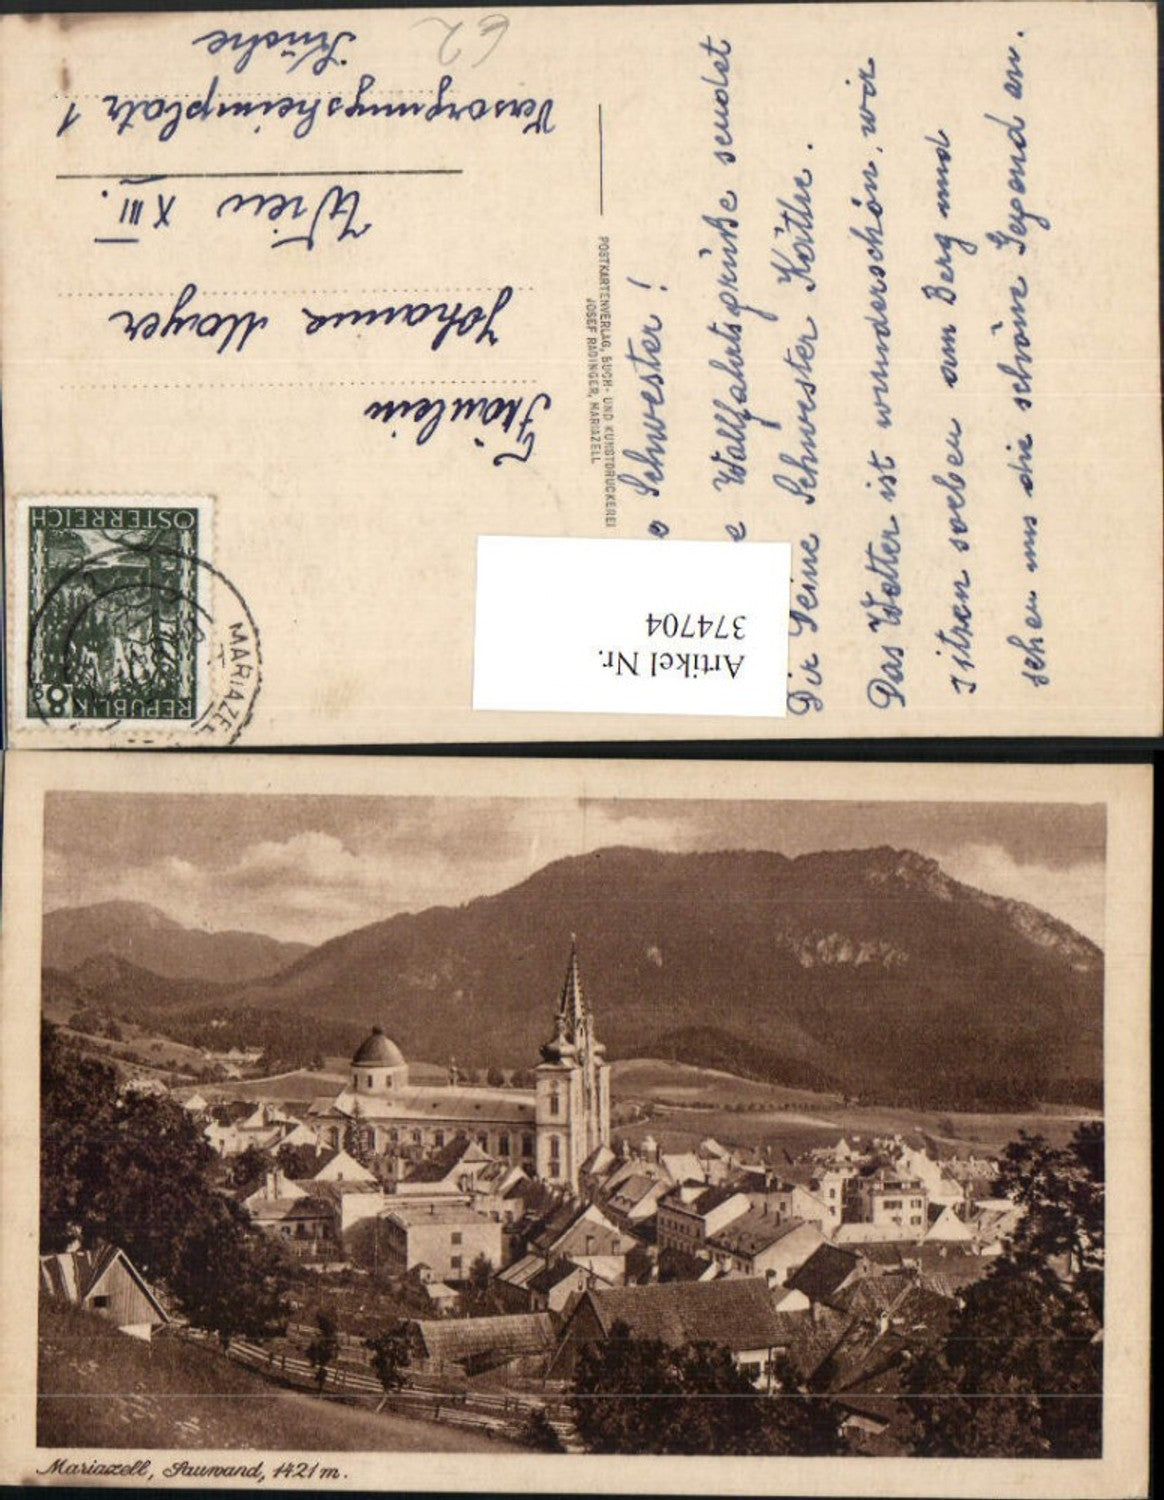 Fräulein
Johanna Mayer
Wien XIII.
Versorgungsheimplatz 1
Küche
62
REPUBLIK 8
ÖSTERREICH
MARIAZELL
POSTKARTENVERLAG, BUCH- UND KUNSTDRUCKEREI
JOSEF RADINGER, MARIAZELL
Schwester!
Wallfahrtsgrüße sendet
Dir Deine Schwester Käthe.
Das Wetter ist wunderschön, wir
sitzen soeben am Berg und
sehen uns die schöne Gegend an.
Artikel Nr.
374704
Mariazell, Sauwand, 1421 m.